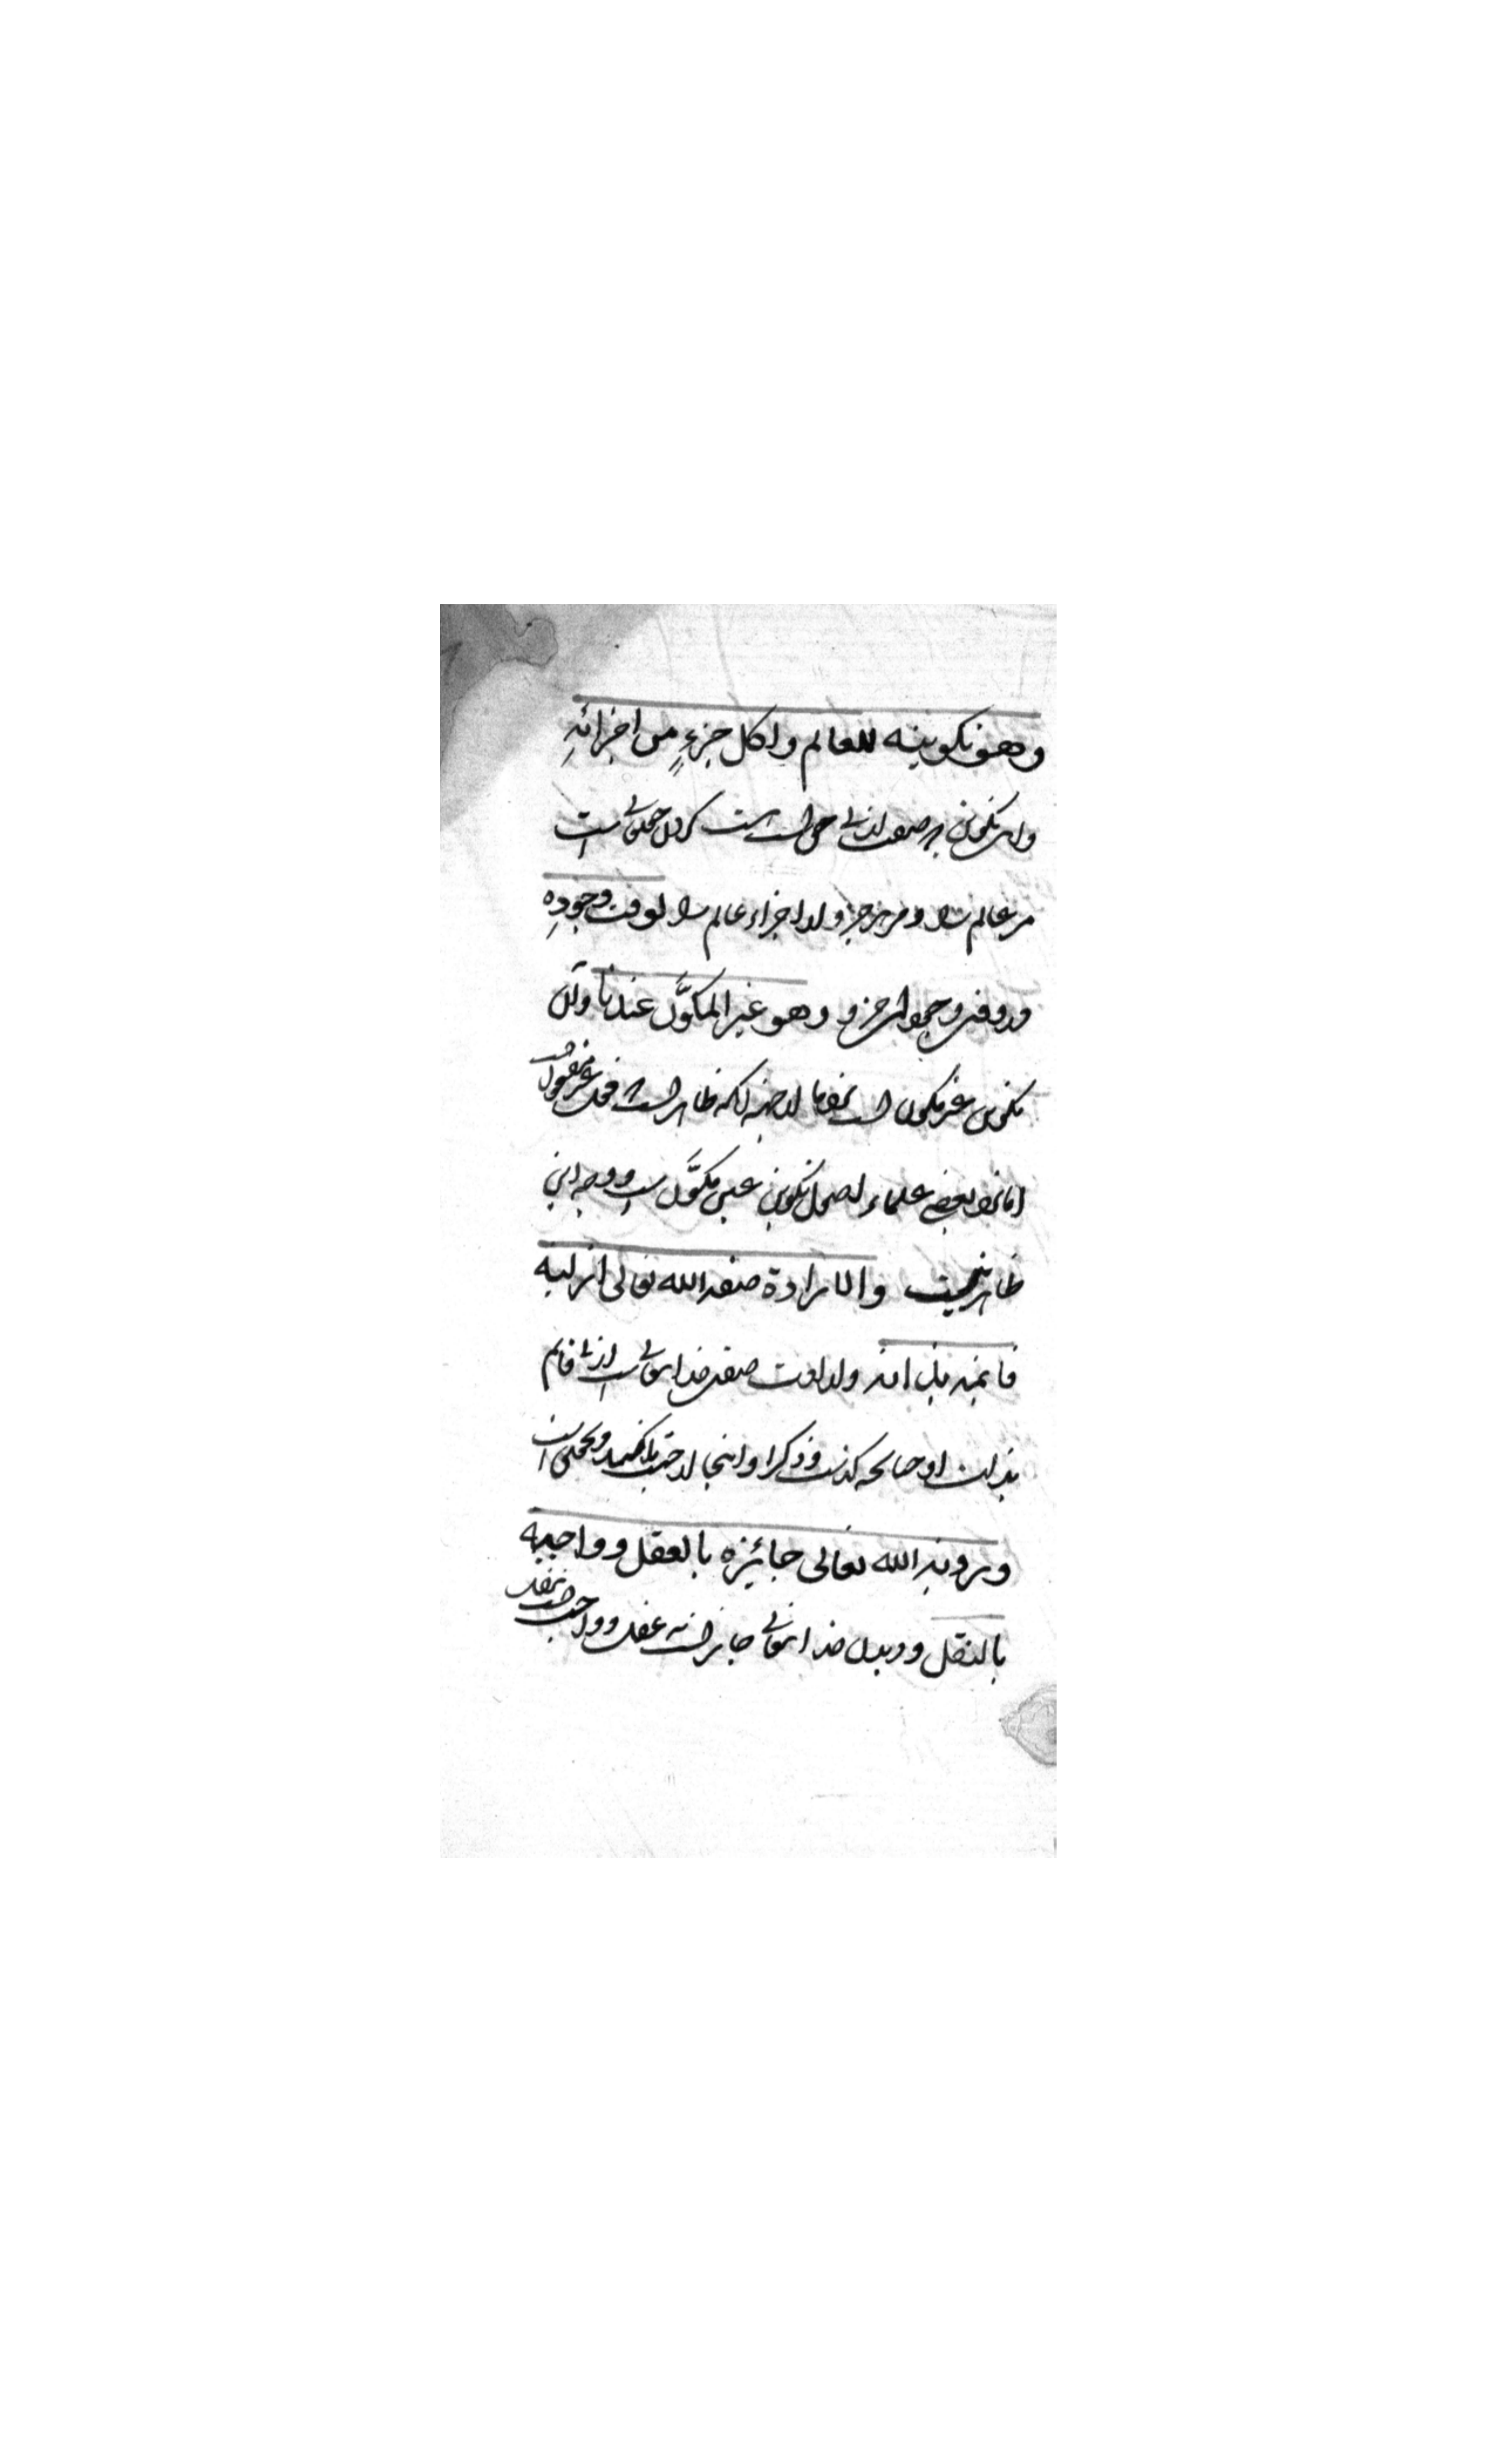 وهو تكوينه للعالم ولكل جزءٍ من اجزائهِ
و اين تكوين كه صفت ازلى حق است كردن حقتعالى است
مر عالم را و مر هر جزو از اجزاء عالم را لوقت وجودِهِ
در وقت وجود آن جزو وهو غير المكوَّن عندنا و آن
تكوين غير مكون است نزد ما از جهة آنكه ظاهر است فعل غير مفعول
اما نزد بعضى علماء اصول تكوين عين مكوَّن است و وجه اين
ظاهر نيست والارادة صفة الله تعالى ازلية
قائمة بذاته و ارادت صفت خدايتعالى است ازلى قائم
بذات او چنانچه گذشت ذكر او اينجا از جهت تاكيد و تحقيق است
ورؤية الله تعالى جائزه بالعقل وواجبة
بالنقل و ديدن خدايتعالى جايز است بعقل و واجب است بنقل